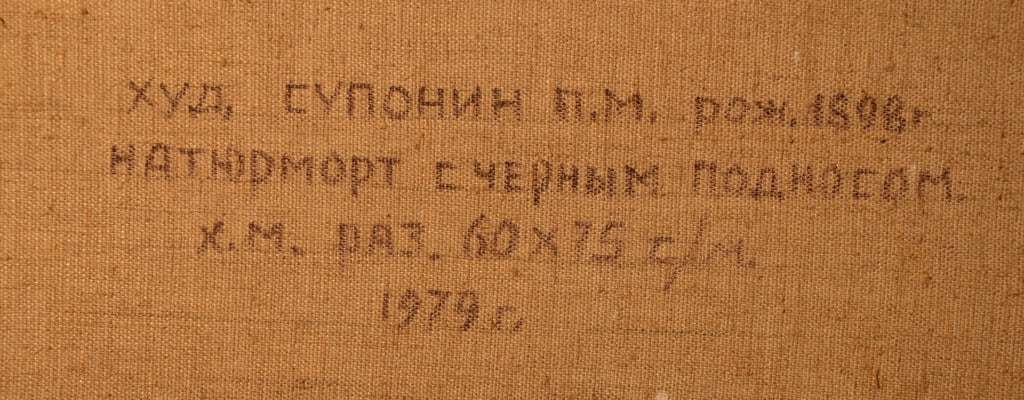 ХУД. СУПОНИН П.М. рож. 1898г
НАТЮРМОРТ С ЧЕРНЫМ ПОДНОСОМ.
Х.М. РАЗ. 60 х 75 с/м.
1979 г.